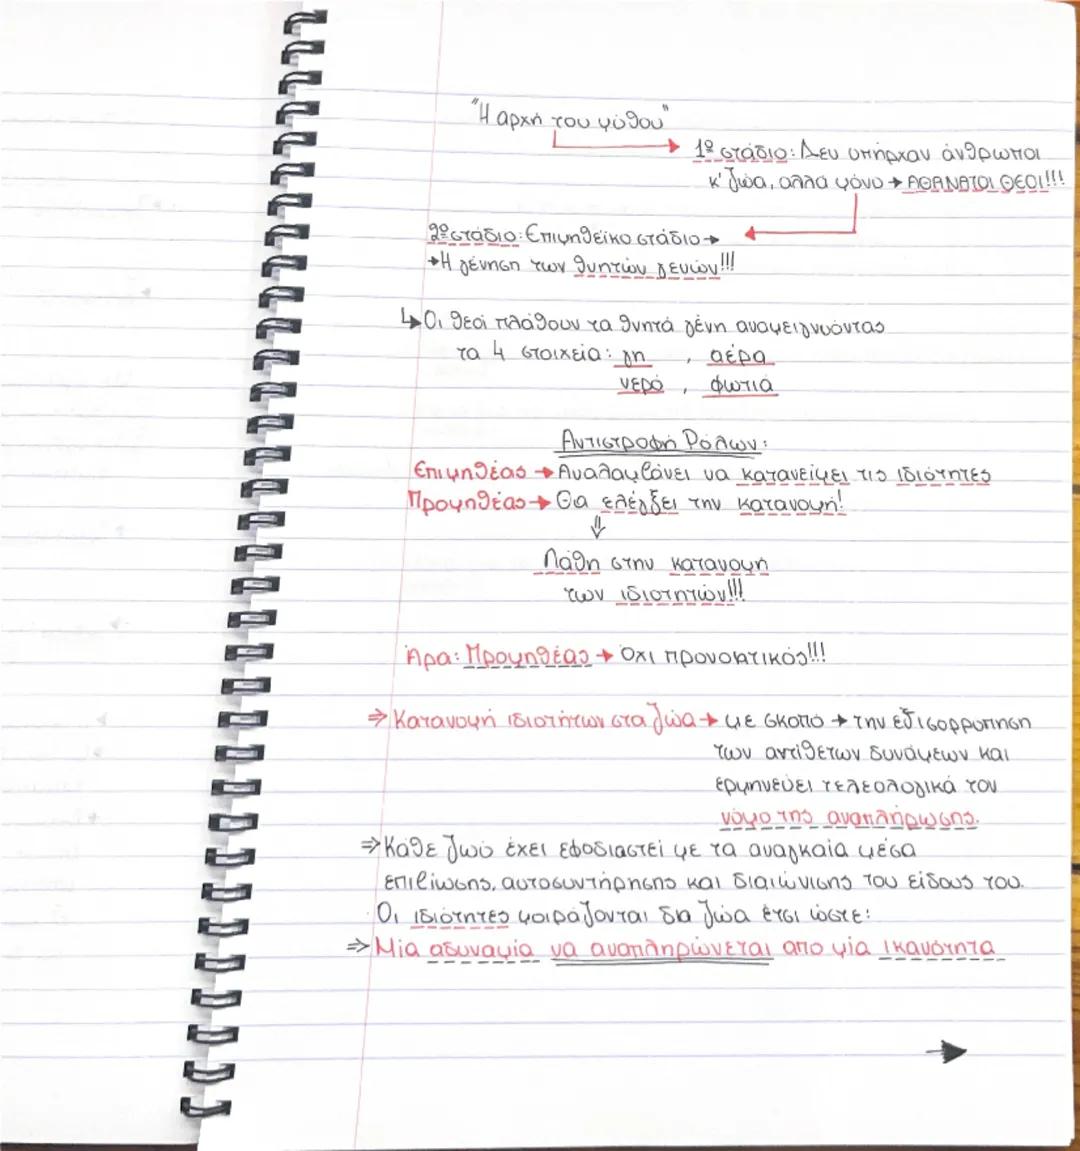 "Η αρχή του μύθου"
1º στάδιο: Δεν υπήρχαν άνθρωποι
κ' ζώα, αλλά μόνο → ΑΘΑΝΑΤΟΙ ΘΕΟΙ!!!
2º στάδιο: Επιμηθεϊκό στάδιο →
→ Η γένηση των θνητών γενών!!!
↳ Οι θεοί πλάθουν τα θνητά γένη αναμειγνύοντας
τα 4 στοιχεία: γη , αέρα
νερό , φωτιά
Αντιστροφή Ρόλων:
Επιμηθέας → Αναλαμβάνει να κατανείμει τις ιδιότητες
Προμηθέας → Θα ελέγξει την κατανομή!
⇓
Λάθη στην κατανομή
των ιδιοτήτων!!!
Άρα: Προμηθέας → Όχι προνοητικός!!!
⇒ Κατανομή ιδιοτήτων στα ζώα → με σκοπό → την εξισορρόπηση
των αντίθετων δυνάμεων και
ερμηνεύει τελεολογικά τον
νόμο της αναπλήρωσης.
⇒ Κάθε ζώο έχει εφοδιαστεί με τα αναγκαία μέσα
επιβίωσης, αυτοσυντήρησης και διαιώνισης του είδους του.
Οι ιδιότητες μοιράζονται δια ζώα έτσι ώστε:
⇒ Μία αδυναμία να αναπληρώνεται από μία ικανότητα
→